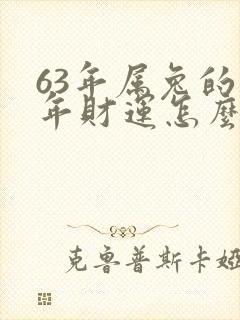 63年属兔的
年財運怎麼
克鲁普斯卡娅